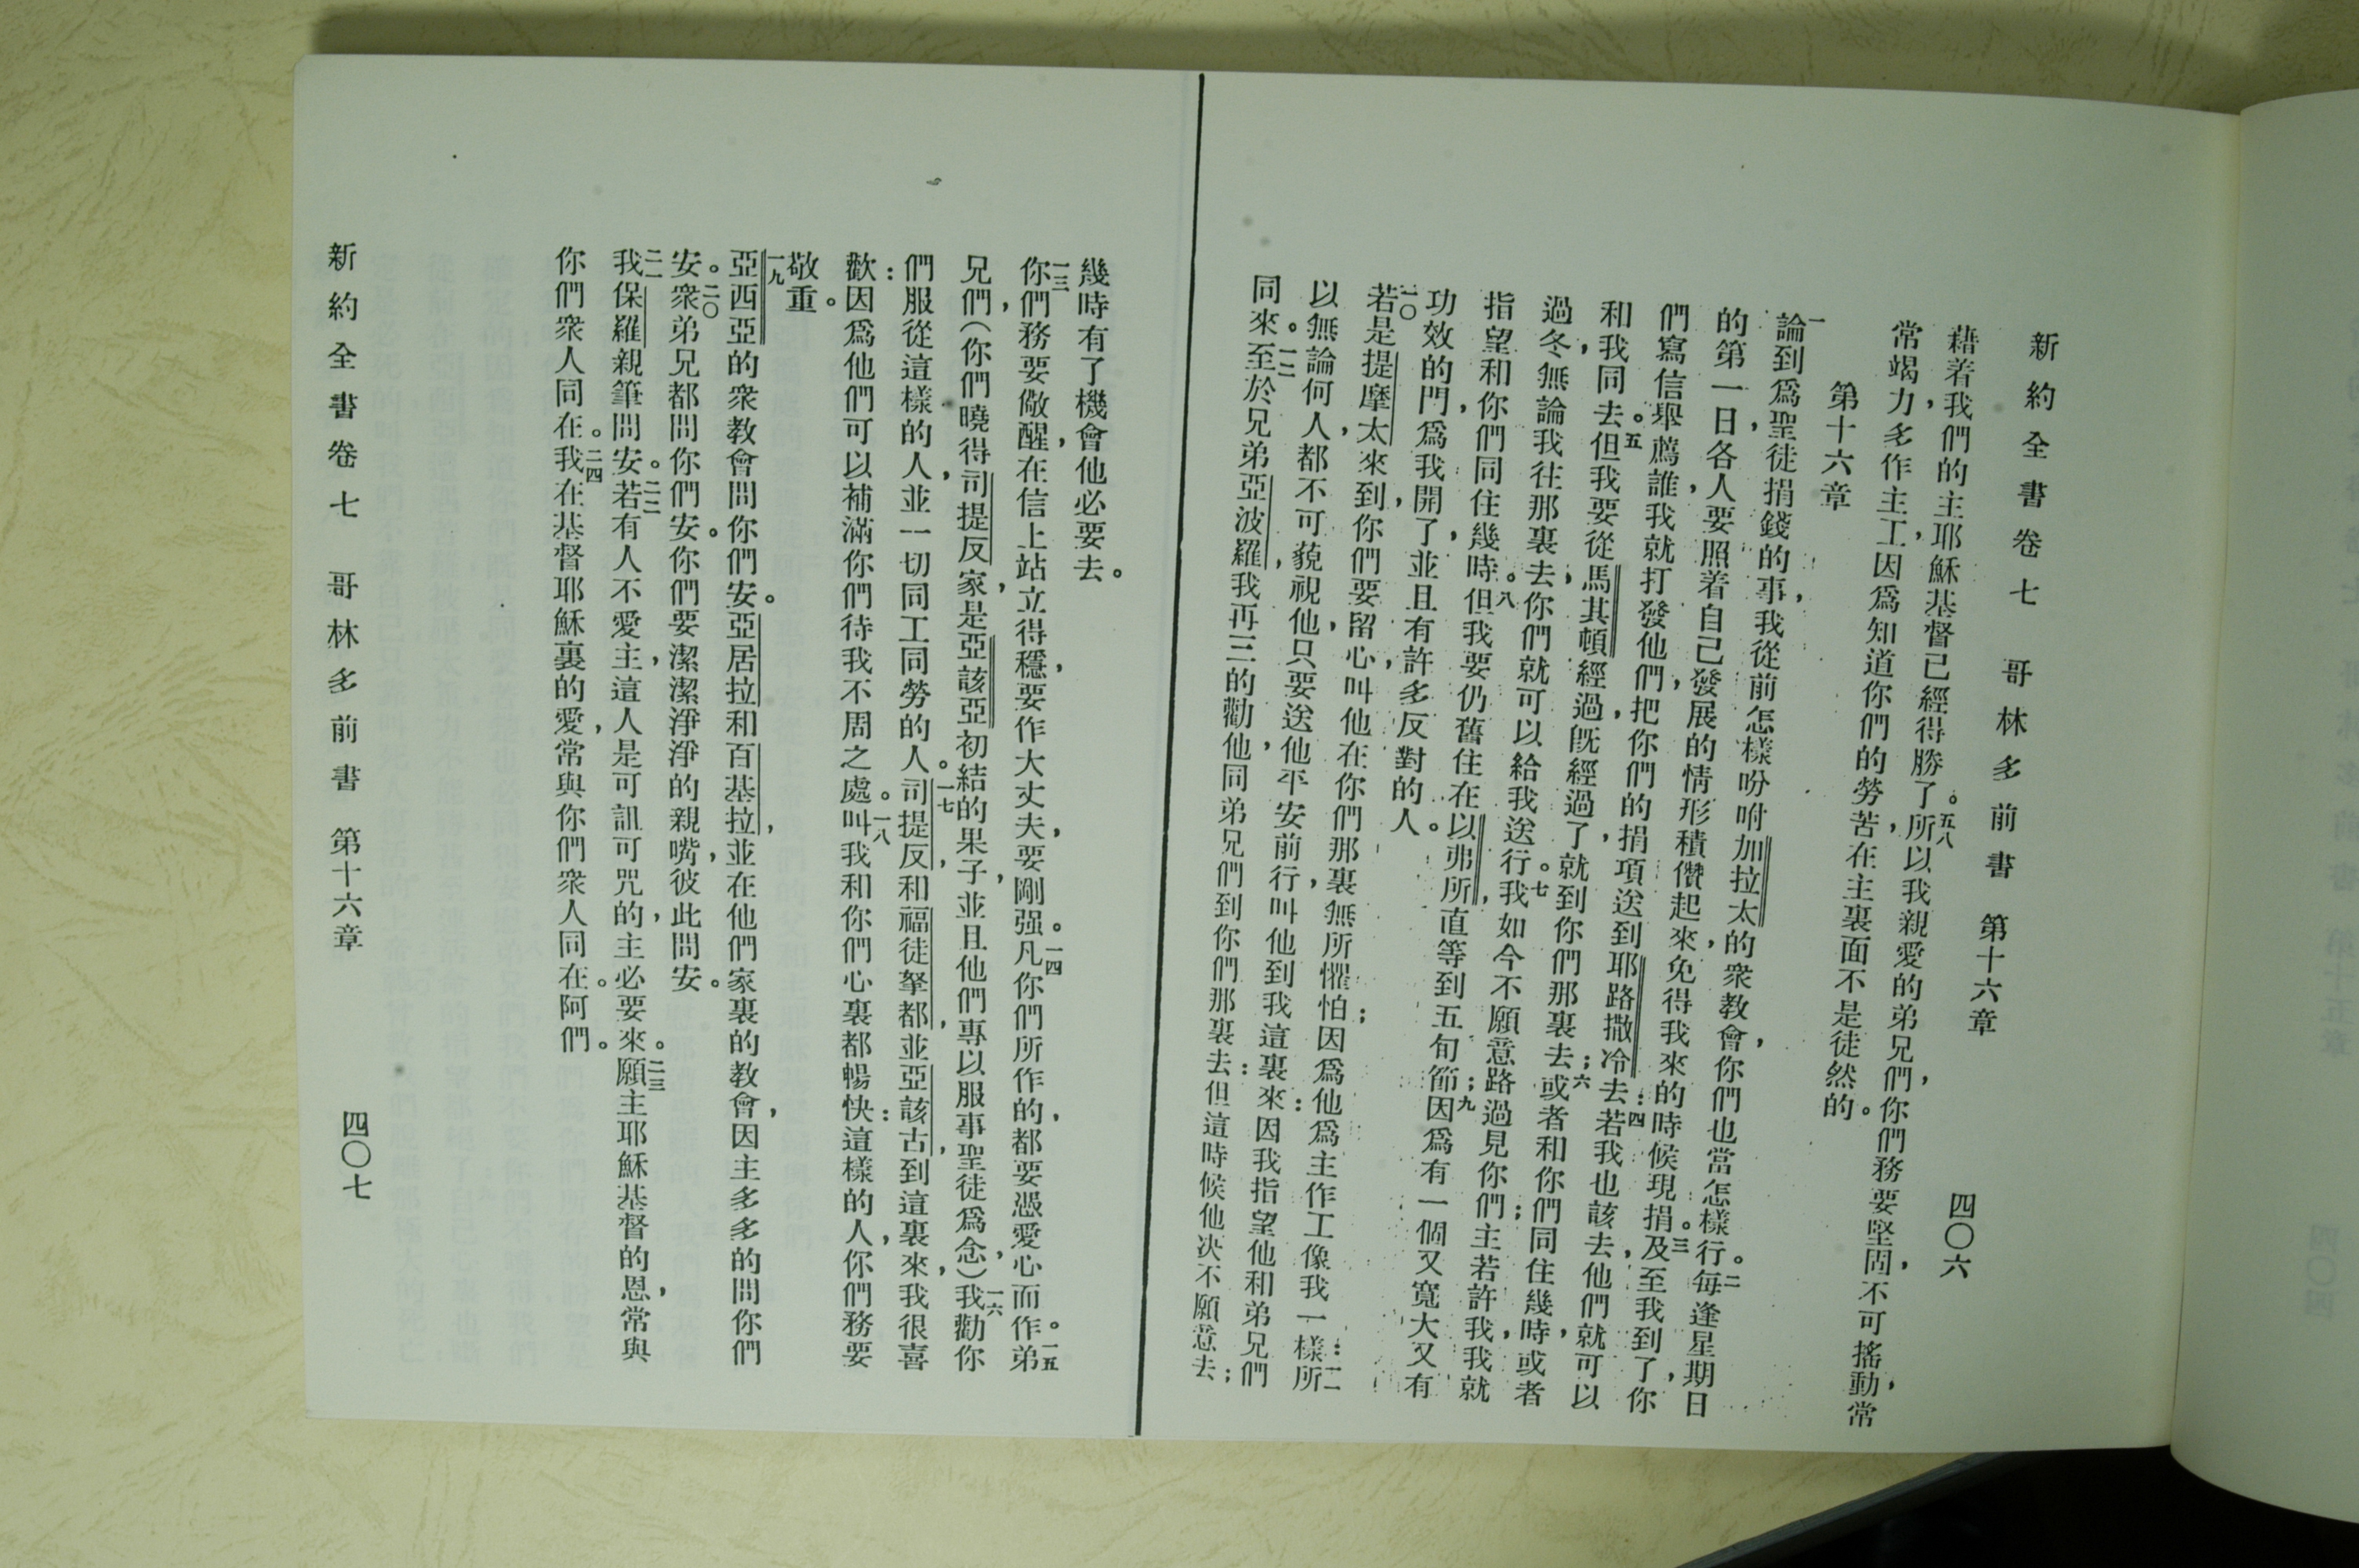 新約全書卷七 哥林多前書 第十六章 四〇六
藉着我們的主耶穌基督已經得勝了。五八所以我親愛的弟兄們，你們務要堅固，不可搖動，常
常竭力多作主工，因爲知道你們的勞苦，在主裏面不是徒然的。
第十六章
一論到爲聖徒捐錢的事，我從前怎樣吩咐加拉太的衆教會，你們也當怎樣行。二每逢星期日
的第一日，各人要照着自己發展的情形積儹起來，免得我來的時候現捐。三及至我到了，你
們寫信舉薦誰，我就打發他們，把你們的捐項送到耶路撒冷去：四若我也該去，他們就可以
和我同去。五但我要從馬其頓經過，旣經過了，就到你們那裏去；六或者和你們同住幾時，或者
過冬，無論我往那裏去，你們就可以給我送行。七我如今不願意路過見你們；主若許我，我就
指望和你們同住幾時。八但我要仍舊住在以弗所，直等到五旬節；九因爲有一個又寬大又有
功效的門，爲我開了，並且有許多反對的人。
一〇若是提摩太來到，你們要留心，叫他在你們那裏無所懼怕；因爲他爲主作工像我一樣：一一所
以無論何人，都不可藐視他，只要送他平安前行，叫他到我這裏來：因我指望他和弟兄們
同來。一二至於兄弟亞波羅，我再三的勸他，同弟兄們到你們那裏去：但這時候他决不願意去；
幾時有了機會他必要去。
一三你們務要儆醒，在信上站立得穩，要作大丈夫，要剛强。一四凡你們所作的，都要憑愛心而作。一五弟
兄們，（你們曉得司提反家，是亞該亞初結的果子，並且他們專以服事聖徒爲念，）一六我勸你
們服從這樣的人，並一切同工同勞的人。一七司提反，和福徒拏都，並亞該古，到這裏來，我很喜
歡：因爲他們可以補滿你們待我不周之處。一八叫我和你們心裏都暢快：這樣的人，你們務要
敬重。
一九亞西亞的衆教會問你們安。亞居拉和百基拉，並在他們家裏的教會，因主多多的問你們
安。二〇衆弟兄都問你們安。你們要潔潔淨淨的親嘴，彼此問安。
二一我保羅親筆問安。二二若有人不愛主，這人是可詛可咒的，主必要來。二三願主耶穌基督的恩，常與
你們衆人同在。二四我在基督耶穌裏的愛，常與你們衆人同在。阿們。
新約全書卷七 哥林多前書 第十六章 四〇七